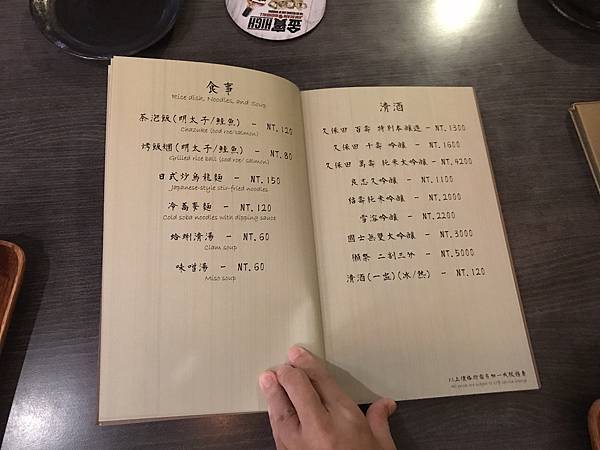 金賓HIGH
食事
Rice dish, Noodles, and Soup
茶泡飯(明太子/鮭魚) - NT.120
Chazuke (cod roe/salmon)
烤飯糰(明太子/鮭魚) - NT.80
Grilled rice ball (cod roe/ salmon)
日式炒烏龍麵 - NT.150
Japanese-style stir-fried noodles
冷蕎麥麵 - NT.120
Cold soba noodles with dipping sauce
蛤蜊清湯 - NT.60
Clam soup
味噌湯 - NT.60
Miso soup
清酒
久保田 百壽 特別本釀造 - NT.1300
久保田 千壽 吟釀 - NT.1600
久保田 萬壽 純米大吟釀 - NT.4200
良志久吟釀 - NT.1100
結壽純米吟釀 - NT.2000
雪溶吟釀 - NT.2200
國士無雙大吟釀 - NT.3000
獺祭 二割三分 - NT.5000
清酒(一壺)(冰/熱) - NT.120
以上價格所需另加一成服務費